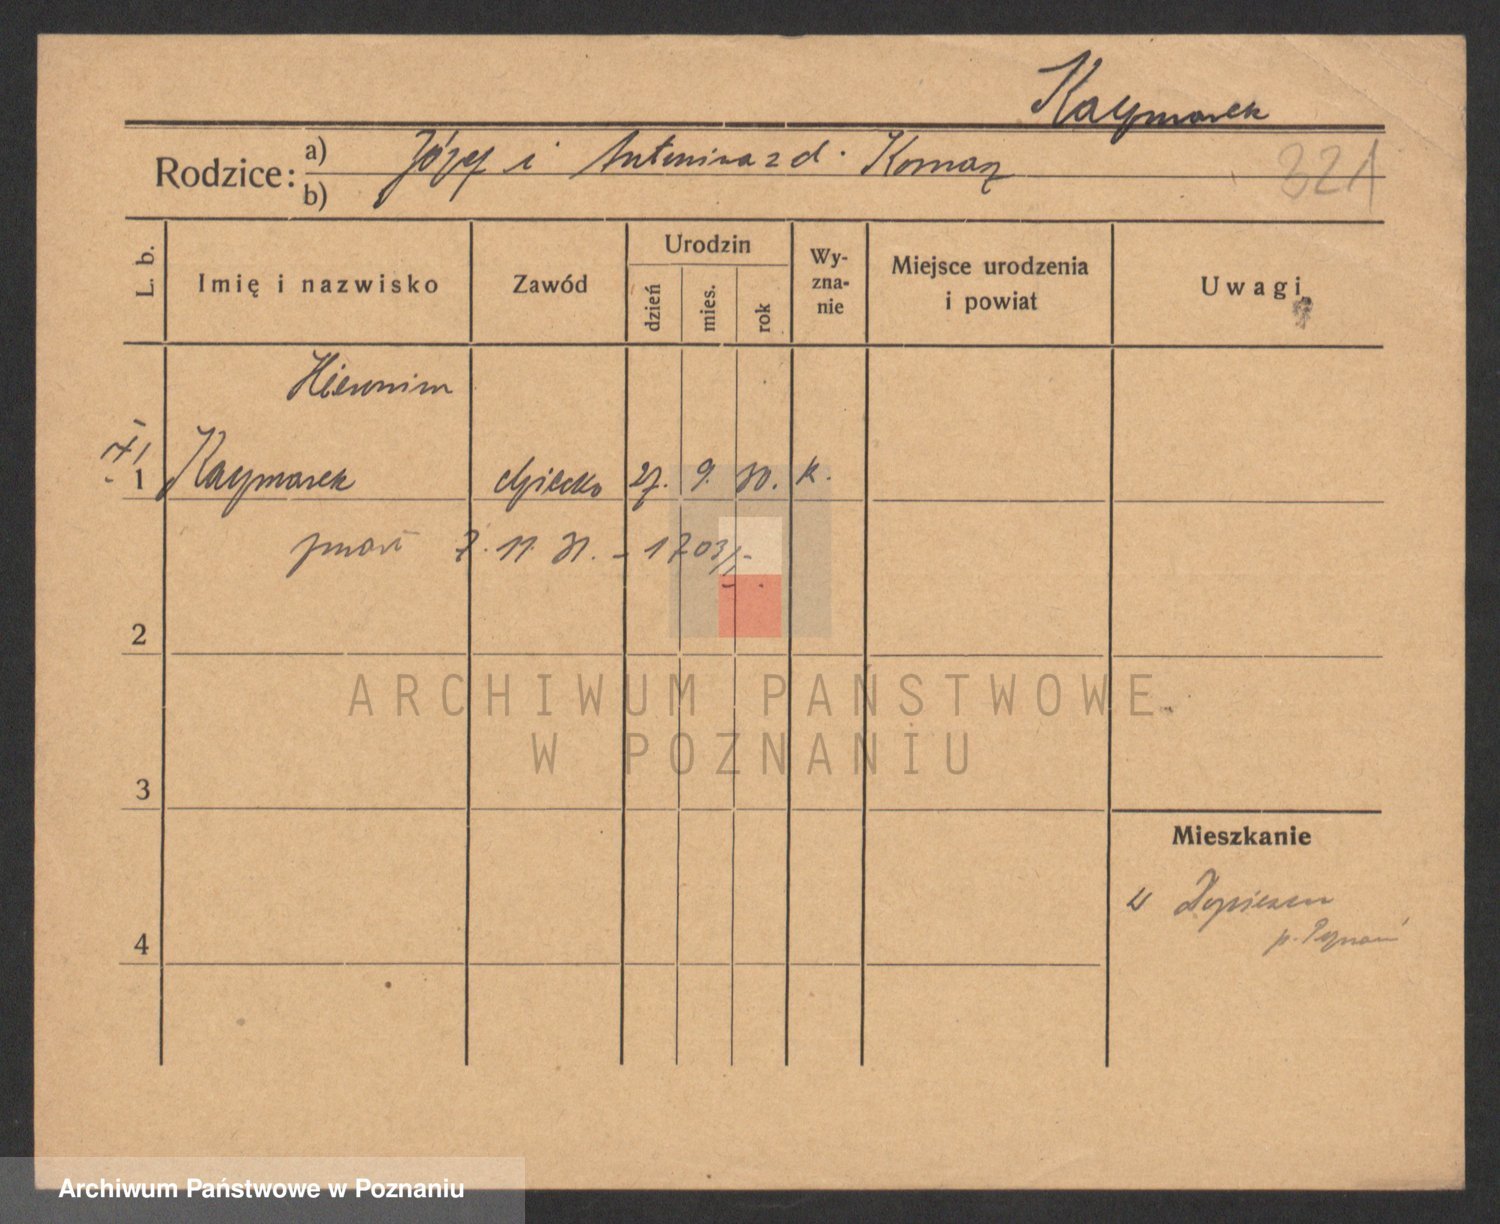 Kaczmarek
Rodzice: a) Józef i Antonina z d.
b)
321
L. b.
Imię i nazwisko
Zawód
Urodzin
dzień
mies.
rok
Wy-
zna-
nie
Miejsce urodzenia
i powiat
Uwagi
Hieronim
1 Kaczmarek dziecko 27. 9. 30. k.
zmarł 7. 11. 31. - 1703/
2
ARCHIWUM PAŃSTWOWE
W POZNANIU
3
Mieszkanie
p. Poznań
4
Archiwum Państwowe w Poznaniu